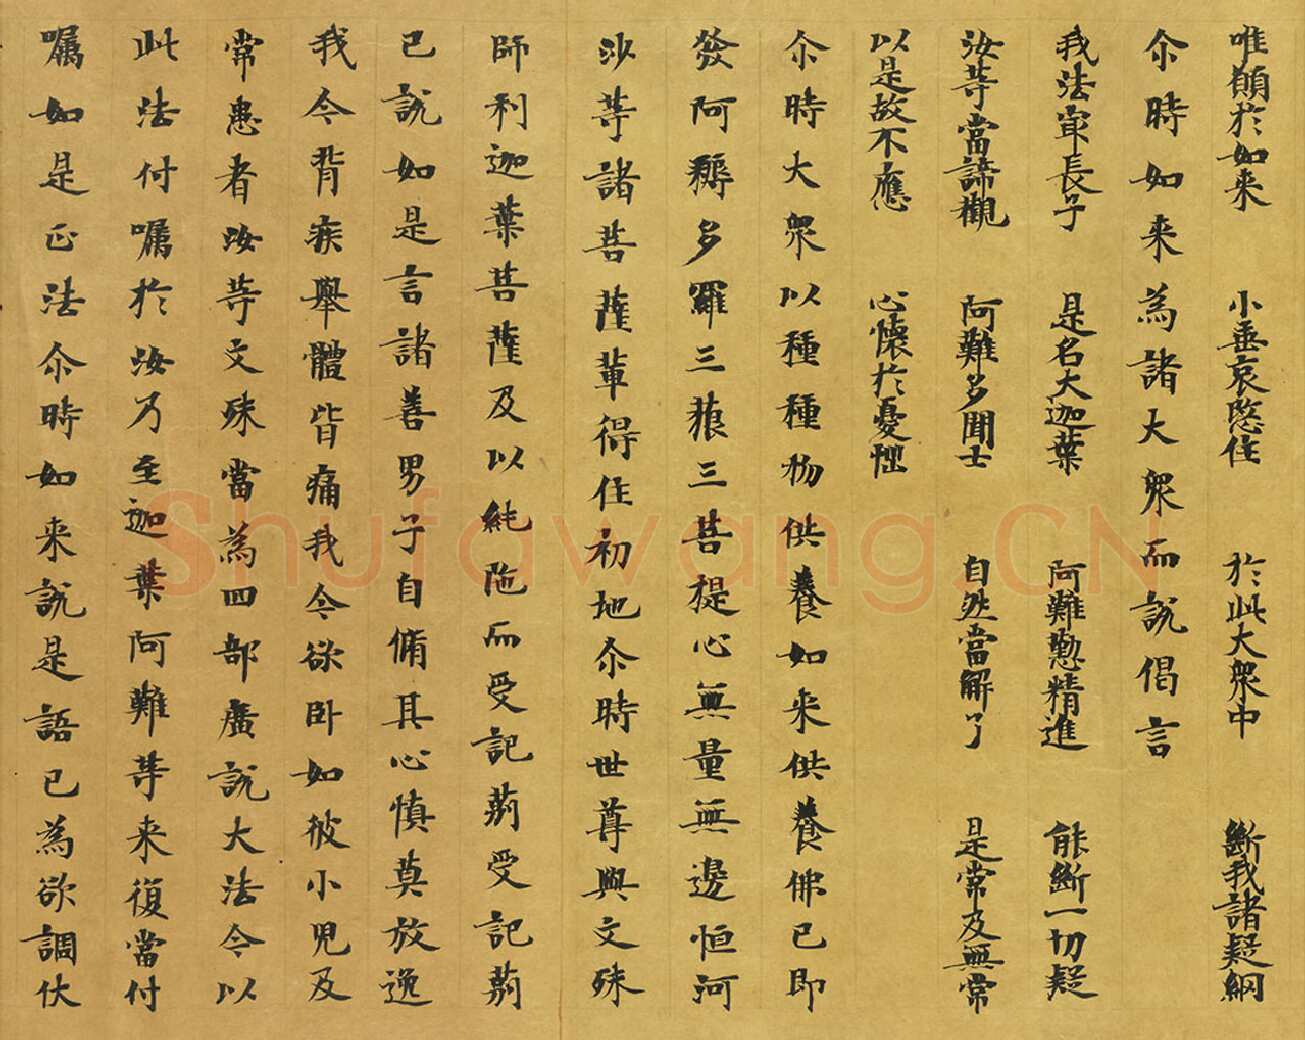 唯願於如来 小垂哀愍住 於此大衆中 斷我諸疑網
尒時如来為諸大衆而說偈言
我法㝡長子 是名大迦葉 阿難懃精進 能斷一切疑
汝䓁當諦觀 阿難多聞士 自然當解了 是常及無常
以是故不應 心懷於憂惱
尒時大衆以種種物供養如来供養佛已即
發阿耨多羅三藐三菩提心無量無邊恒河
沙䓁諸菩薩軰得住初地尒時世尊與文殊
師利迦葉菩薩及以純陁而受記莂受記莂
已說如是言諸善男子自脩其心慎莫放逸
我今背疾舉體皆痛我今欲卧如彼小兒及
常患者汝䓁文殊當為四部廣說大法今以
此法付嘱於汝乃至迦葉阿難䓁来復當付
嘱如是正法尒時如来說是語已為欲調伏
Shufawang.CN